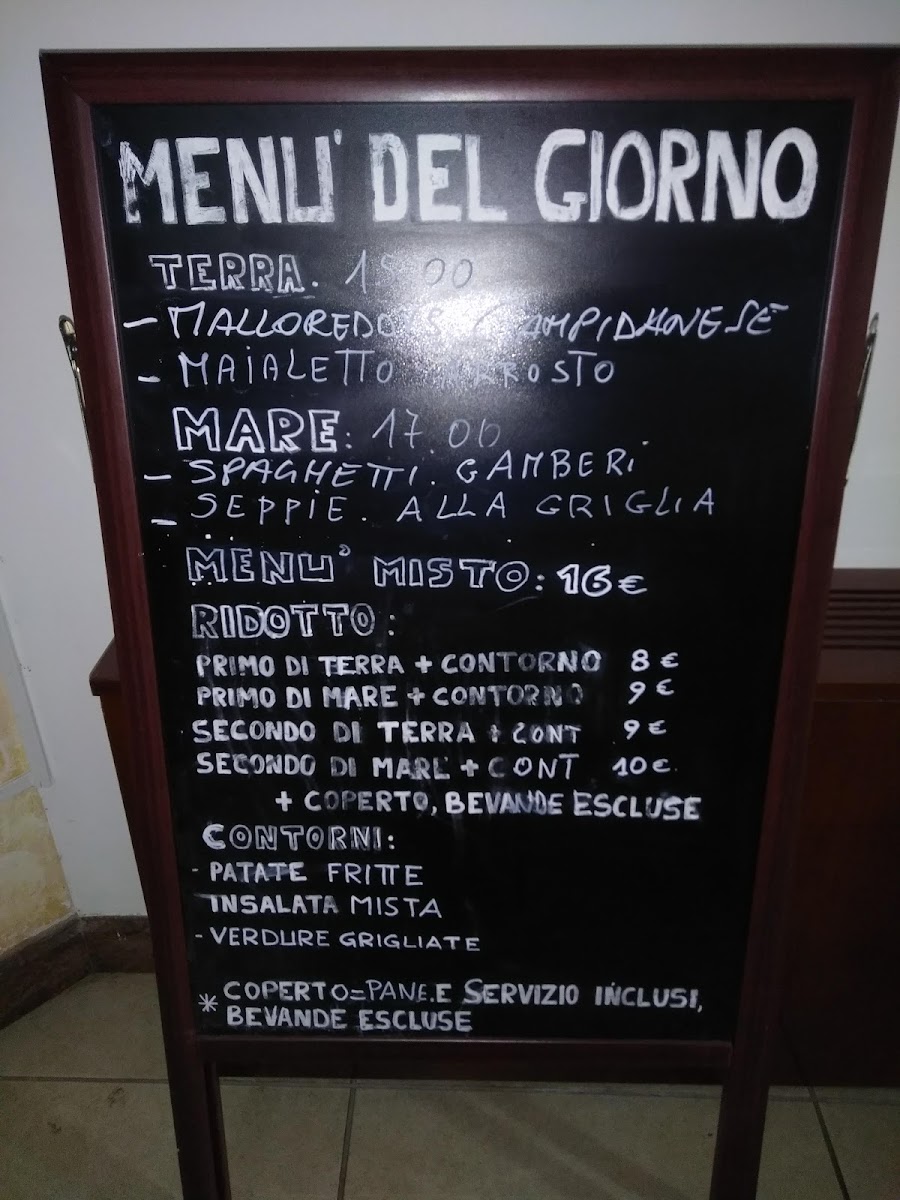 MENU' DEL GIORNO
TERRA.
- MALLOREDO CAMPIDANESE
- MAIALETTO ARROSTO
MARE: 17.00
- SPAGHETTI. GAMBERI
- SEPPIE. ALLA GRIGLIA
MENU' MISTO: 16€
RIDOTTO:
PRIMO DI TERRA + CONTORNO 8 €
PRIMO DI MARE + CONTORNO 9 €
SECONDO DI TERRA + CONT 9 €
SECONDO DI MARE + CONT 10 €
+ COPERTO, BEVANDE ESCLUSE
CONTORNI:
- PATATE FRITTE
INSALATA MISTA
- VERDURE GRIGLIATE
* COPERTO=PANE.E SERVIZIO INCLUSI,
BEVANDE ESCLUSE